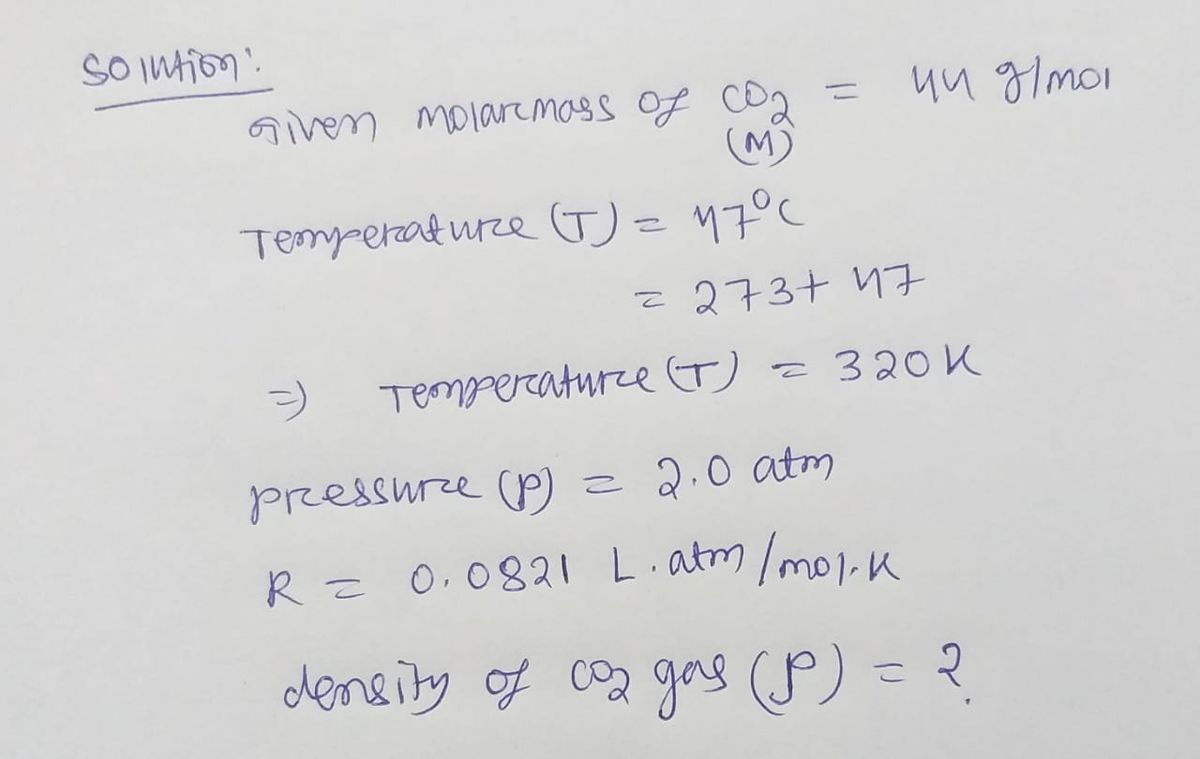 Solution:
Given molar mass of CO2 = 44 g/mol
(M)
Temperature (T) = 47°C
= 273+ 47
=) Temperature (T) = 320 K
pressure (P) = 2.0 atm
R = 0.0821 L.atm/mol.K
density of CO2 gas (ρ) = ?